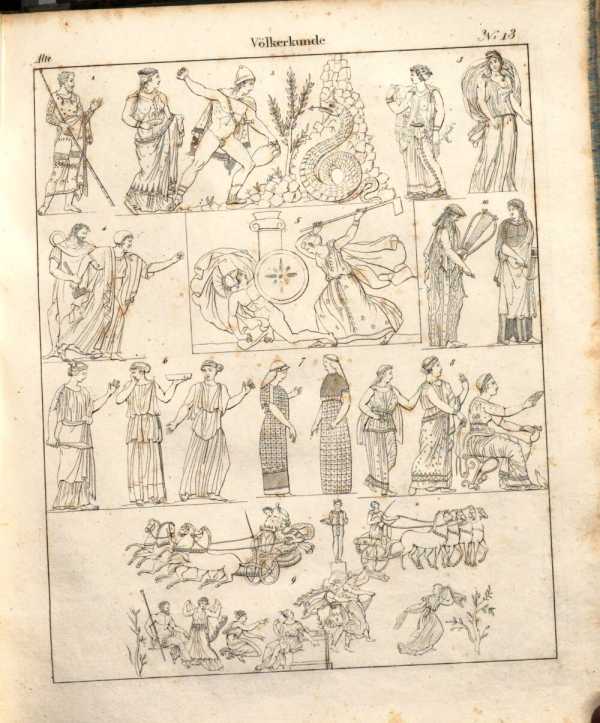 Völkerkunde
Alte
No. 13
1
2
3
4
5
10
6
7
8
9